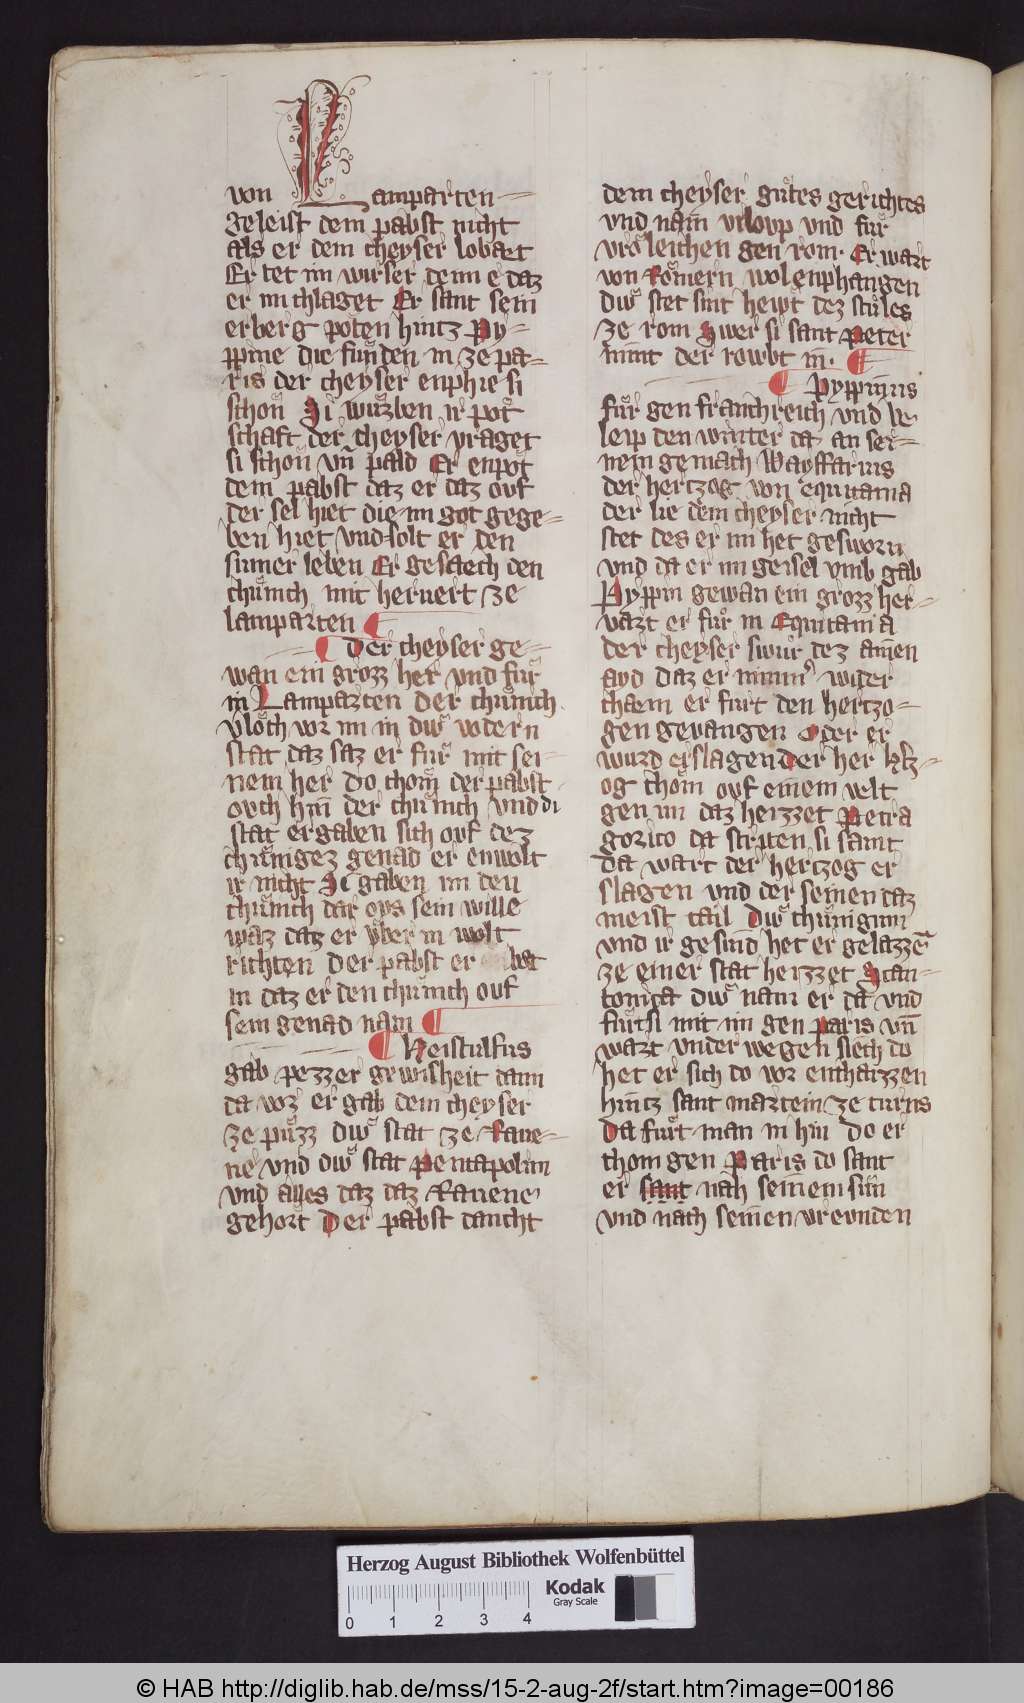 von Lamparten
Zeleist dem pabst nicht
als er dem cheyser lobart
Er tet im wirser denn e daz
er im chlaget Er sant sein
erberg poten hintz Py-
ppine die funden in ze pa-
ris der cheyser enphie si
schon Si wurben ir pot
schaft der cheyser vraget
si schon vn pald Er enpot
dem pabst daz er daz ouf
der sel hiet die im got gege-
ben hiet vnd solt er den
simer leben Er gestech den
chunich mit hervert ze
lamparten
Der cheyser ge-
wan ein grozz her vnd fur
in Lamparten Der chunich
vloch vor im in diw vodern
stat daz saz er fur mit sei-
nem her Do chom der pabst
ovch hin der chunich vnd di
stat ergaben sich ouf dez
chuniges genad er enwolt
ir nicht Si gaben im den
chunich dar ovs sein wille
waz daz er vber in wolt
richten Der pabst er bat
in daz er den chunich ouf
sein genad nam
Heistulfus
gab pezzer gewisheit dann
da vor er gab dem cheyser
ze puzz diw stat ze Raue-
ne vnd diw stat Pentapolim
vnd alles daz daz Rauene
gehort Der pabst dancht
dem cheyser gutes gerichtes
vnd nam vrlovp vnd fur
vroleichen gen rom. Er wart
von Romern wol enphangen
diw stet sint hewt dez stules
ze rom Swer si sant Peter
nimt der rowbt in.
Pyppinus
fur gen franchreich vnd be
leip den winter da an sei-
nem gemach Wayffarius
der hertzog von equitania
der lie dem cheyser nicht
stet des er im het gesworn
vnd da er im geisel vmb gab
Pyppin gewan ein grozz her-
vart er fur in Equitania
der cheyser swur dez ainen
ayd daz er nimmer wider
chaem er furt den hertzo-
gen gevangen Oder er
wurd erslagen Der her hertz-
og chom ouf einem velt
gen im daz heizzet Petra
gorico da striten si samt
da wart der hertzog er
slagen vnd der seinen daz
meist tail Diw chuniginn
vnd ir gesind het er gelazzen
ze einer stat heizzet Scan-
tonica diw nam er da vnd
furt si mit im gen Paris vn
wart vnder wegen siech do
het er sich do vor enthaizzen
hintz sant martein ze turns
Da furt man in hin Do er
chom gen Paris do sant
er sant nah seinem sun
vnd nach seinen vreunden
Herzog August Bibliothek Wolfenbüttel
0 1 2 3 4
Kodak
Gray Scale
© HAB http://diglib.hab.de/mss/15-2-aug-2f/start.htm?image=00186